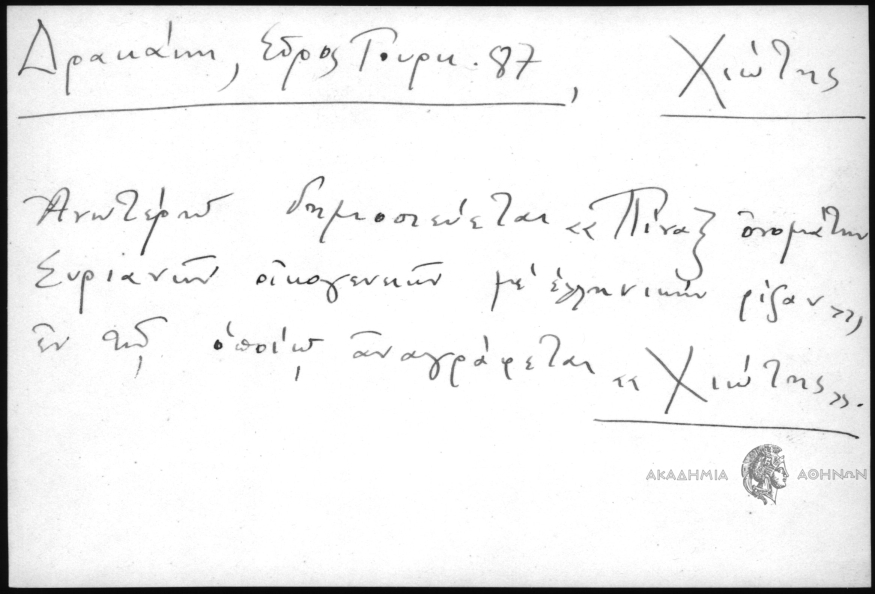 Δρακάκη, Σῦρος Τουρκ. 87, Χιώτης
Ἀνωτέρω δημοσιεύεται «Πίναξ ὀνομάτων
Συριανῶν οἰκογενειῶν μέ ἑλληνικήν ρίζαν»,
ἐν τῷ ὁποίῳ ἀναγράφεται «Χιώτης».
ΑΚΑΔΗΜΙΑ ΑΘΗΝΩΝ